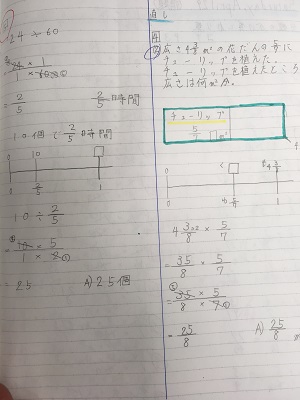 24÷60
24 × 1
1 × 60
= 2
5
2
5 時間
10個で 2/5 時間
0 10 □
0 2/5 1
10÷ 2/5
= 10 × 5
1 × 2
= 25 A) 25個
直し
広さ
m²の花だんの
に
チューリップを植えた。
チューリップを植えたところ
広さは何m²か。
チューリップ
5
7
□ m²
0 □
0 1
4 3/8 × 5/7
= 35/8 × 5/7
= 35 × 5
8 × 7
= 25
8
A) 25
8